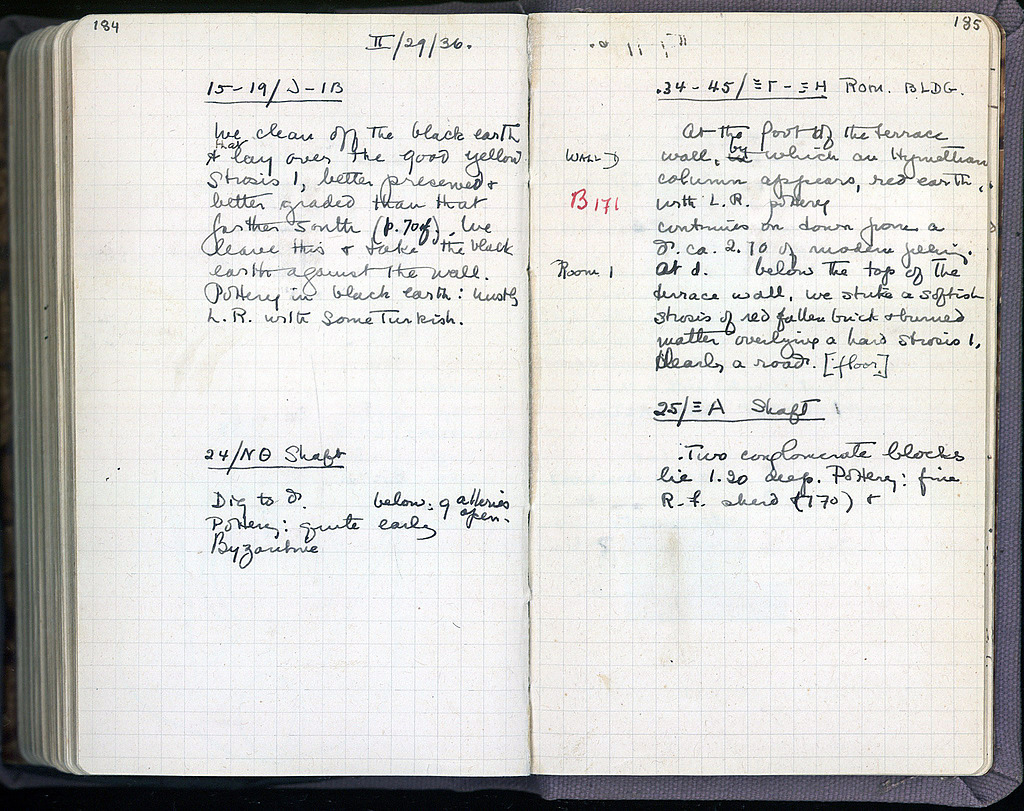 184
II/29/36.
15-19/J-1B
We clean off the black earth
that
lay over the good yellow
Strosis 1, better preserved &
better graded than that
farther south (p. 70 f). We
leave this & take the black
earth against the wall.
Pottery in black earth: mostly
L.R. with some Turkish.
24/NΘ Shaft
Dig to d. below: galleries
open.
Pottery: quite early
Byzantine
185
34-45/ΞΓ-ΞH Rom. BLDG.
At the foot of the terrace
WALL D
wall, by which an Hymettian
column appears, red earth,
B 171
with L.R. pottery
continues on down from a
d. ca. 2.70 of modern filling.
Room 1
At d. below the top of the
terrace wall, we strike a softish
strosis of red fallen brick & burned
matter overlying a hard strosis 1,
clearly a road. [floor]
25/ΞA Shaft
Two conglomerate blocks
lie 1.20 deep. Pottery: fine
R.-f. sherd (770) &